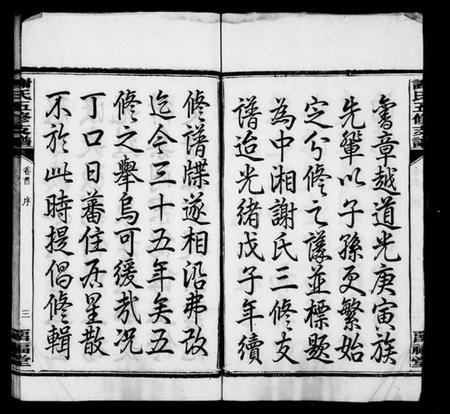 謝氏五修支譜
魯章越道光庚寅族
先輩以子孫更繁始
定分修之議並標題
為中湘謝氏三修支
譜迨光緒戊子年續
修譜牒遂相沿弗改
迄今三十五年矣五
修之舉烏可緩哉況
丁口日蕃住居星散
不於此時提倡修輯
謝氏五修支譜
卷首 序
三